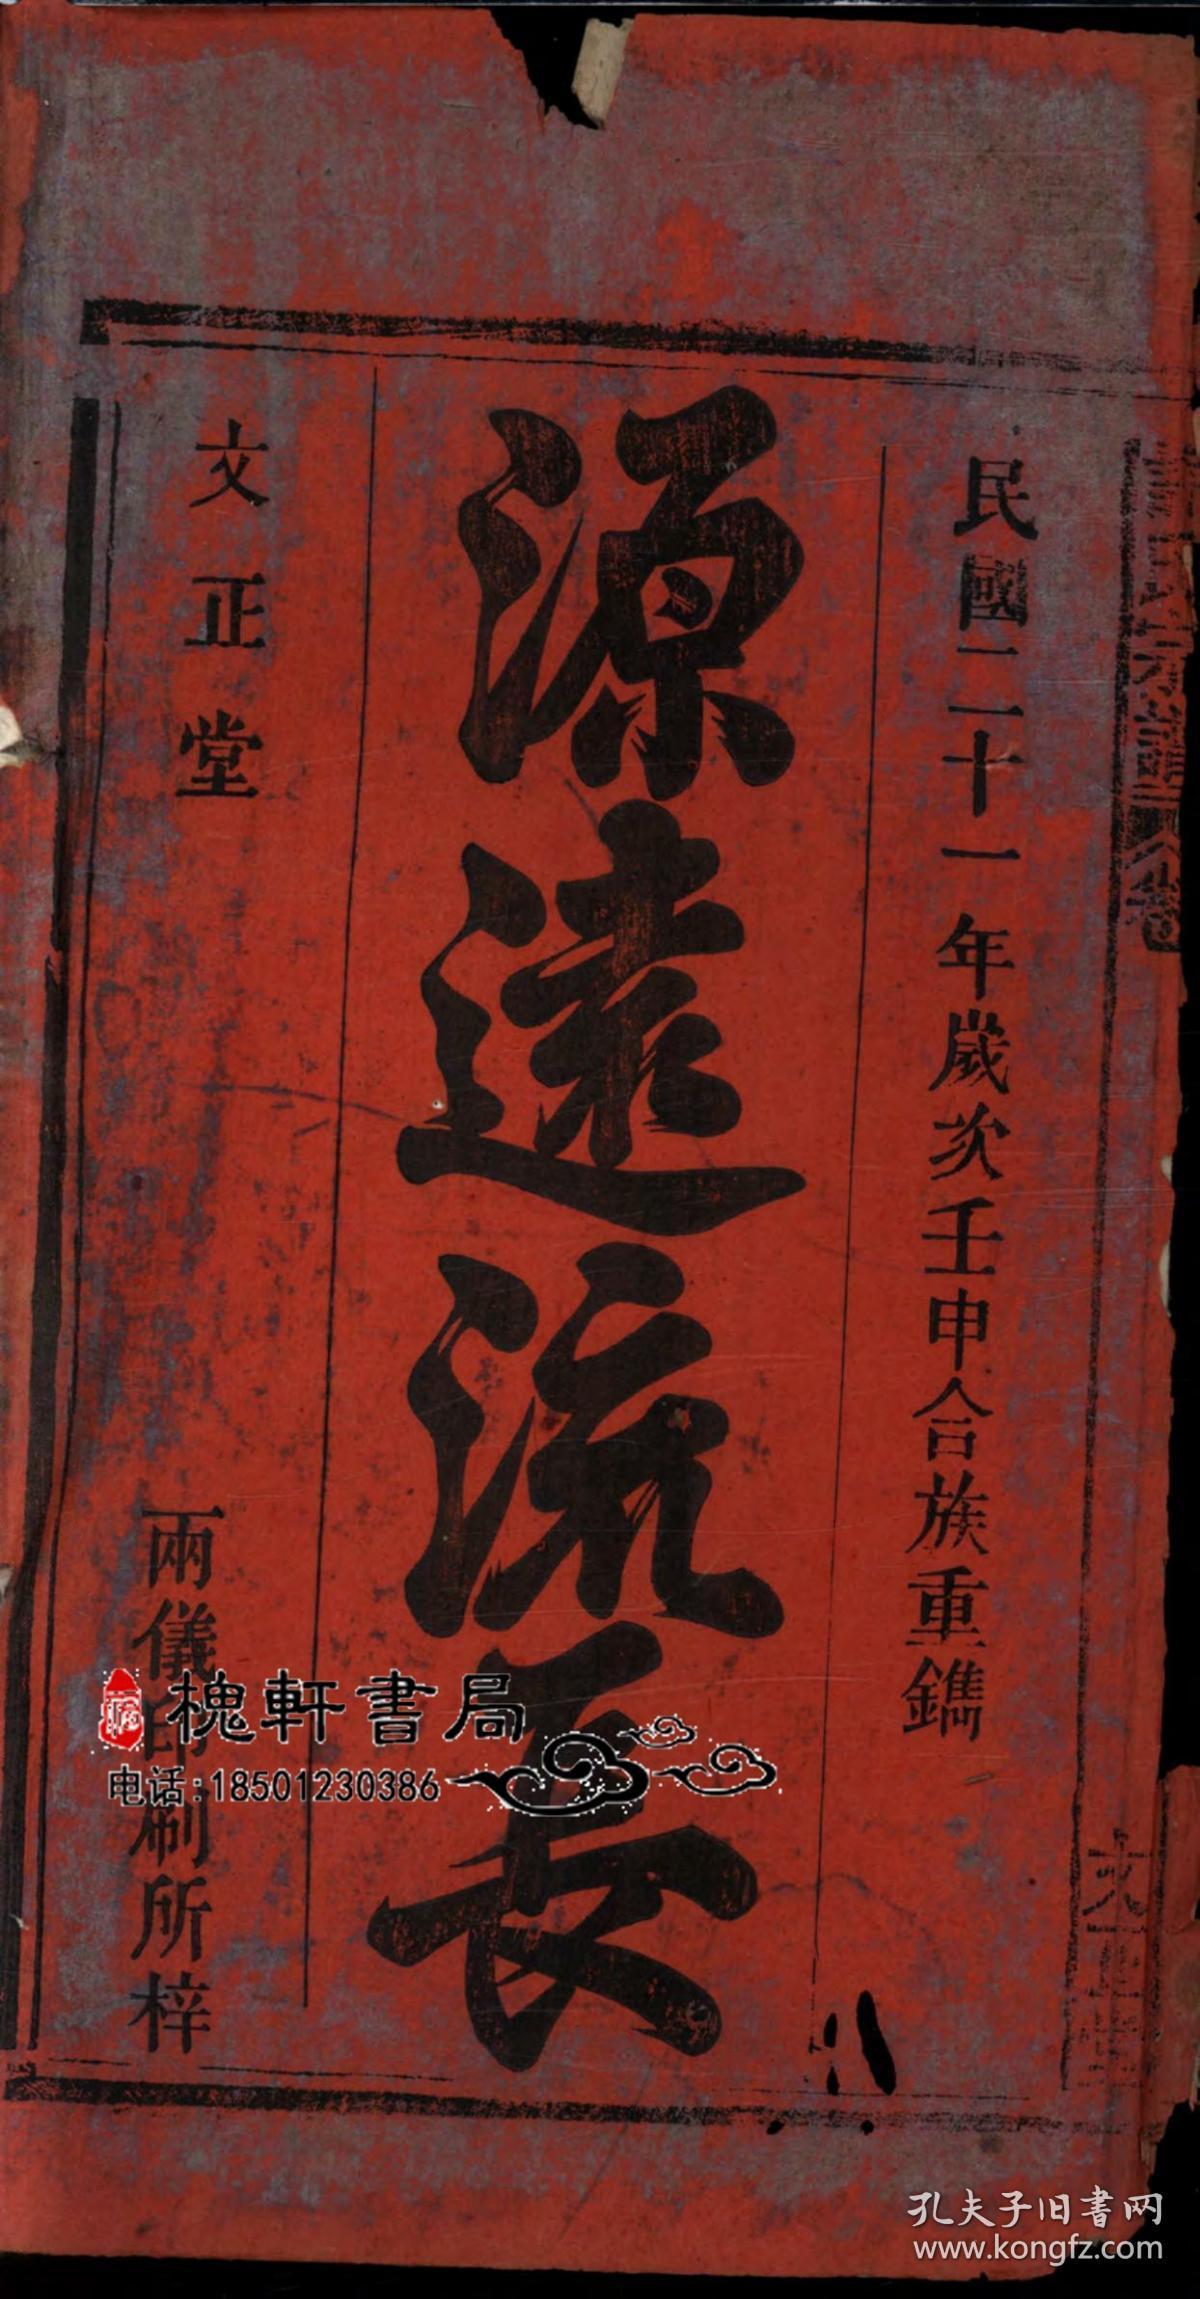 民國二十一年歲次壬申合族重鐫
源遠流長
文正堂
兩儀印刷所梓
氏宗譜 卷
文正堂
槐軒書局
电话:18501230386
孔夫子旧书网
www.kongfz.com